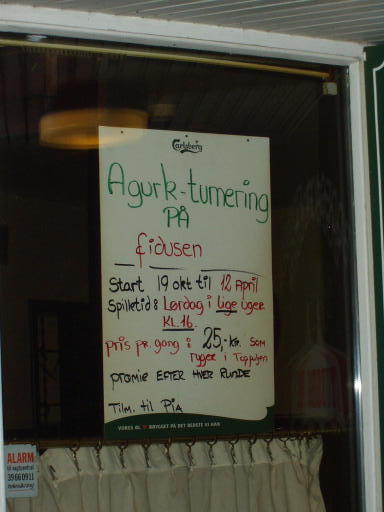 Carlsberg
Agurk-turnering
PÅ
fidusen
Start 19 okt til 12 April
Spilletid: Lørdag i lige uger
KL.16.
pris pr. gang : 25,- kr. som
ryger i Toppuljen
præmie EFTER HVER RUNDE
Tilm. til PIA
VORES ØL BRYGGET PÅ DET BEDSTE VI HAR
ALARM
39660911